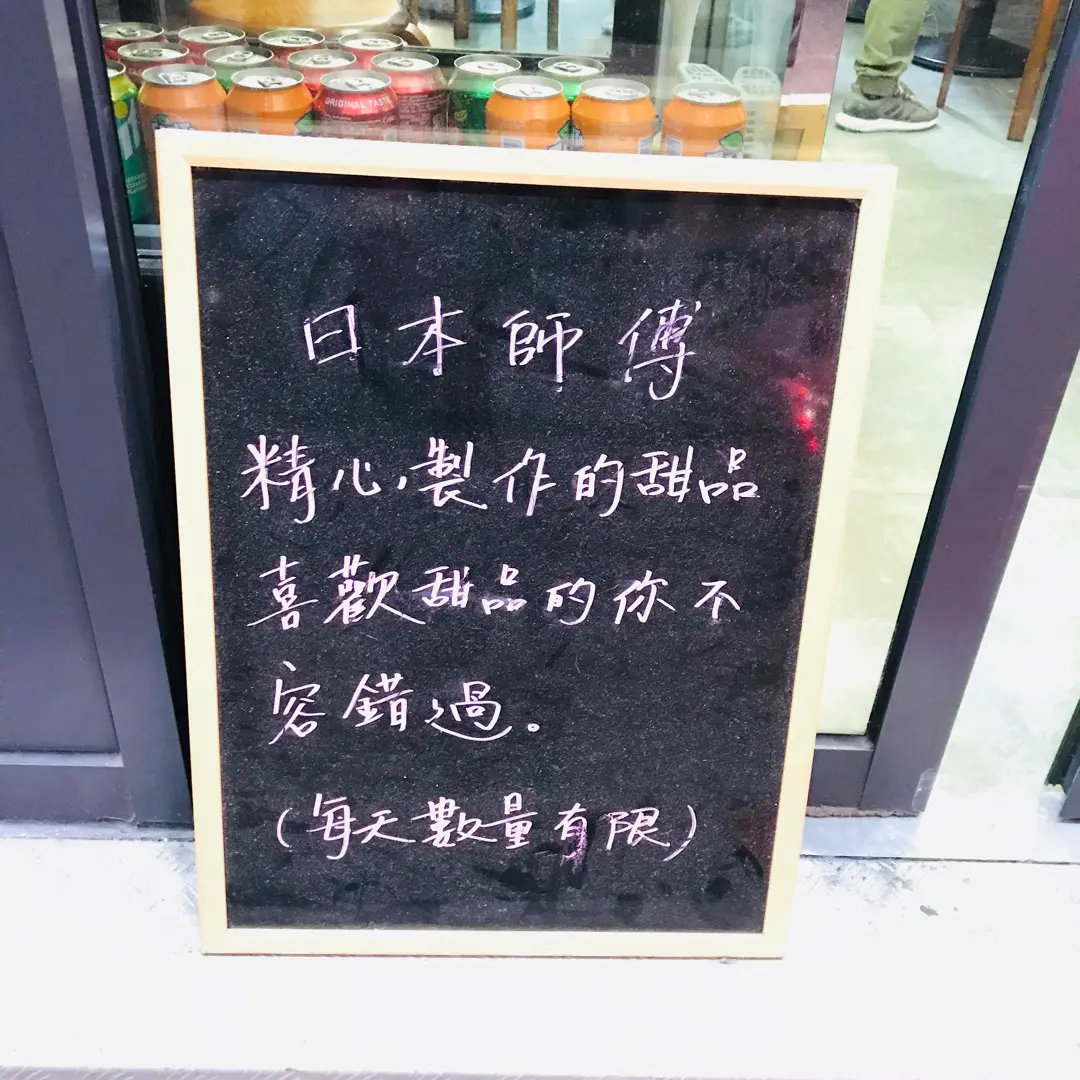 ORIGINAL TASTE
日本師傅
精心製作的甜品
喜歡甜品的你不
容錯過。
(每天數量有限)